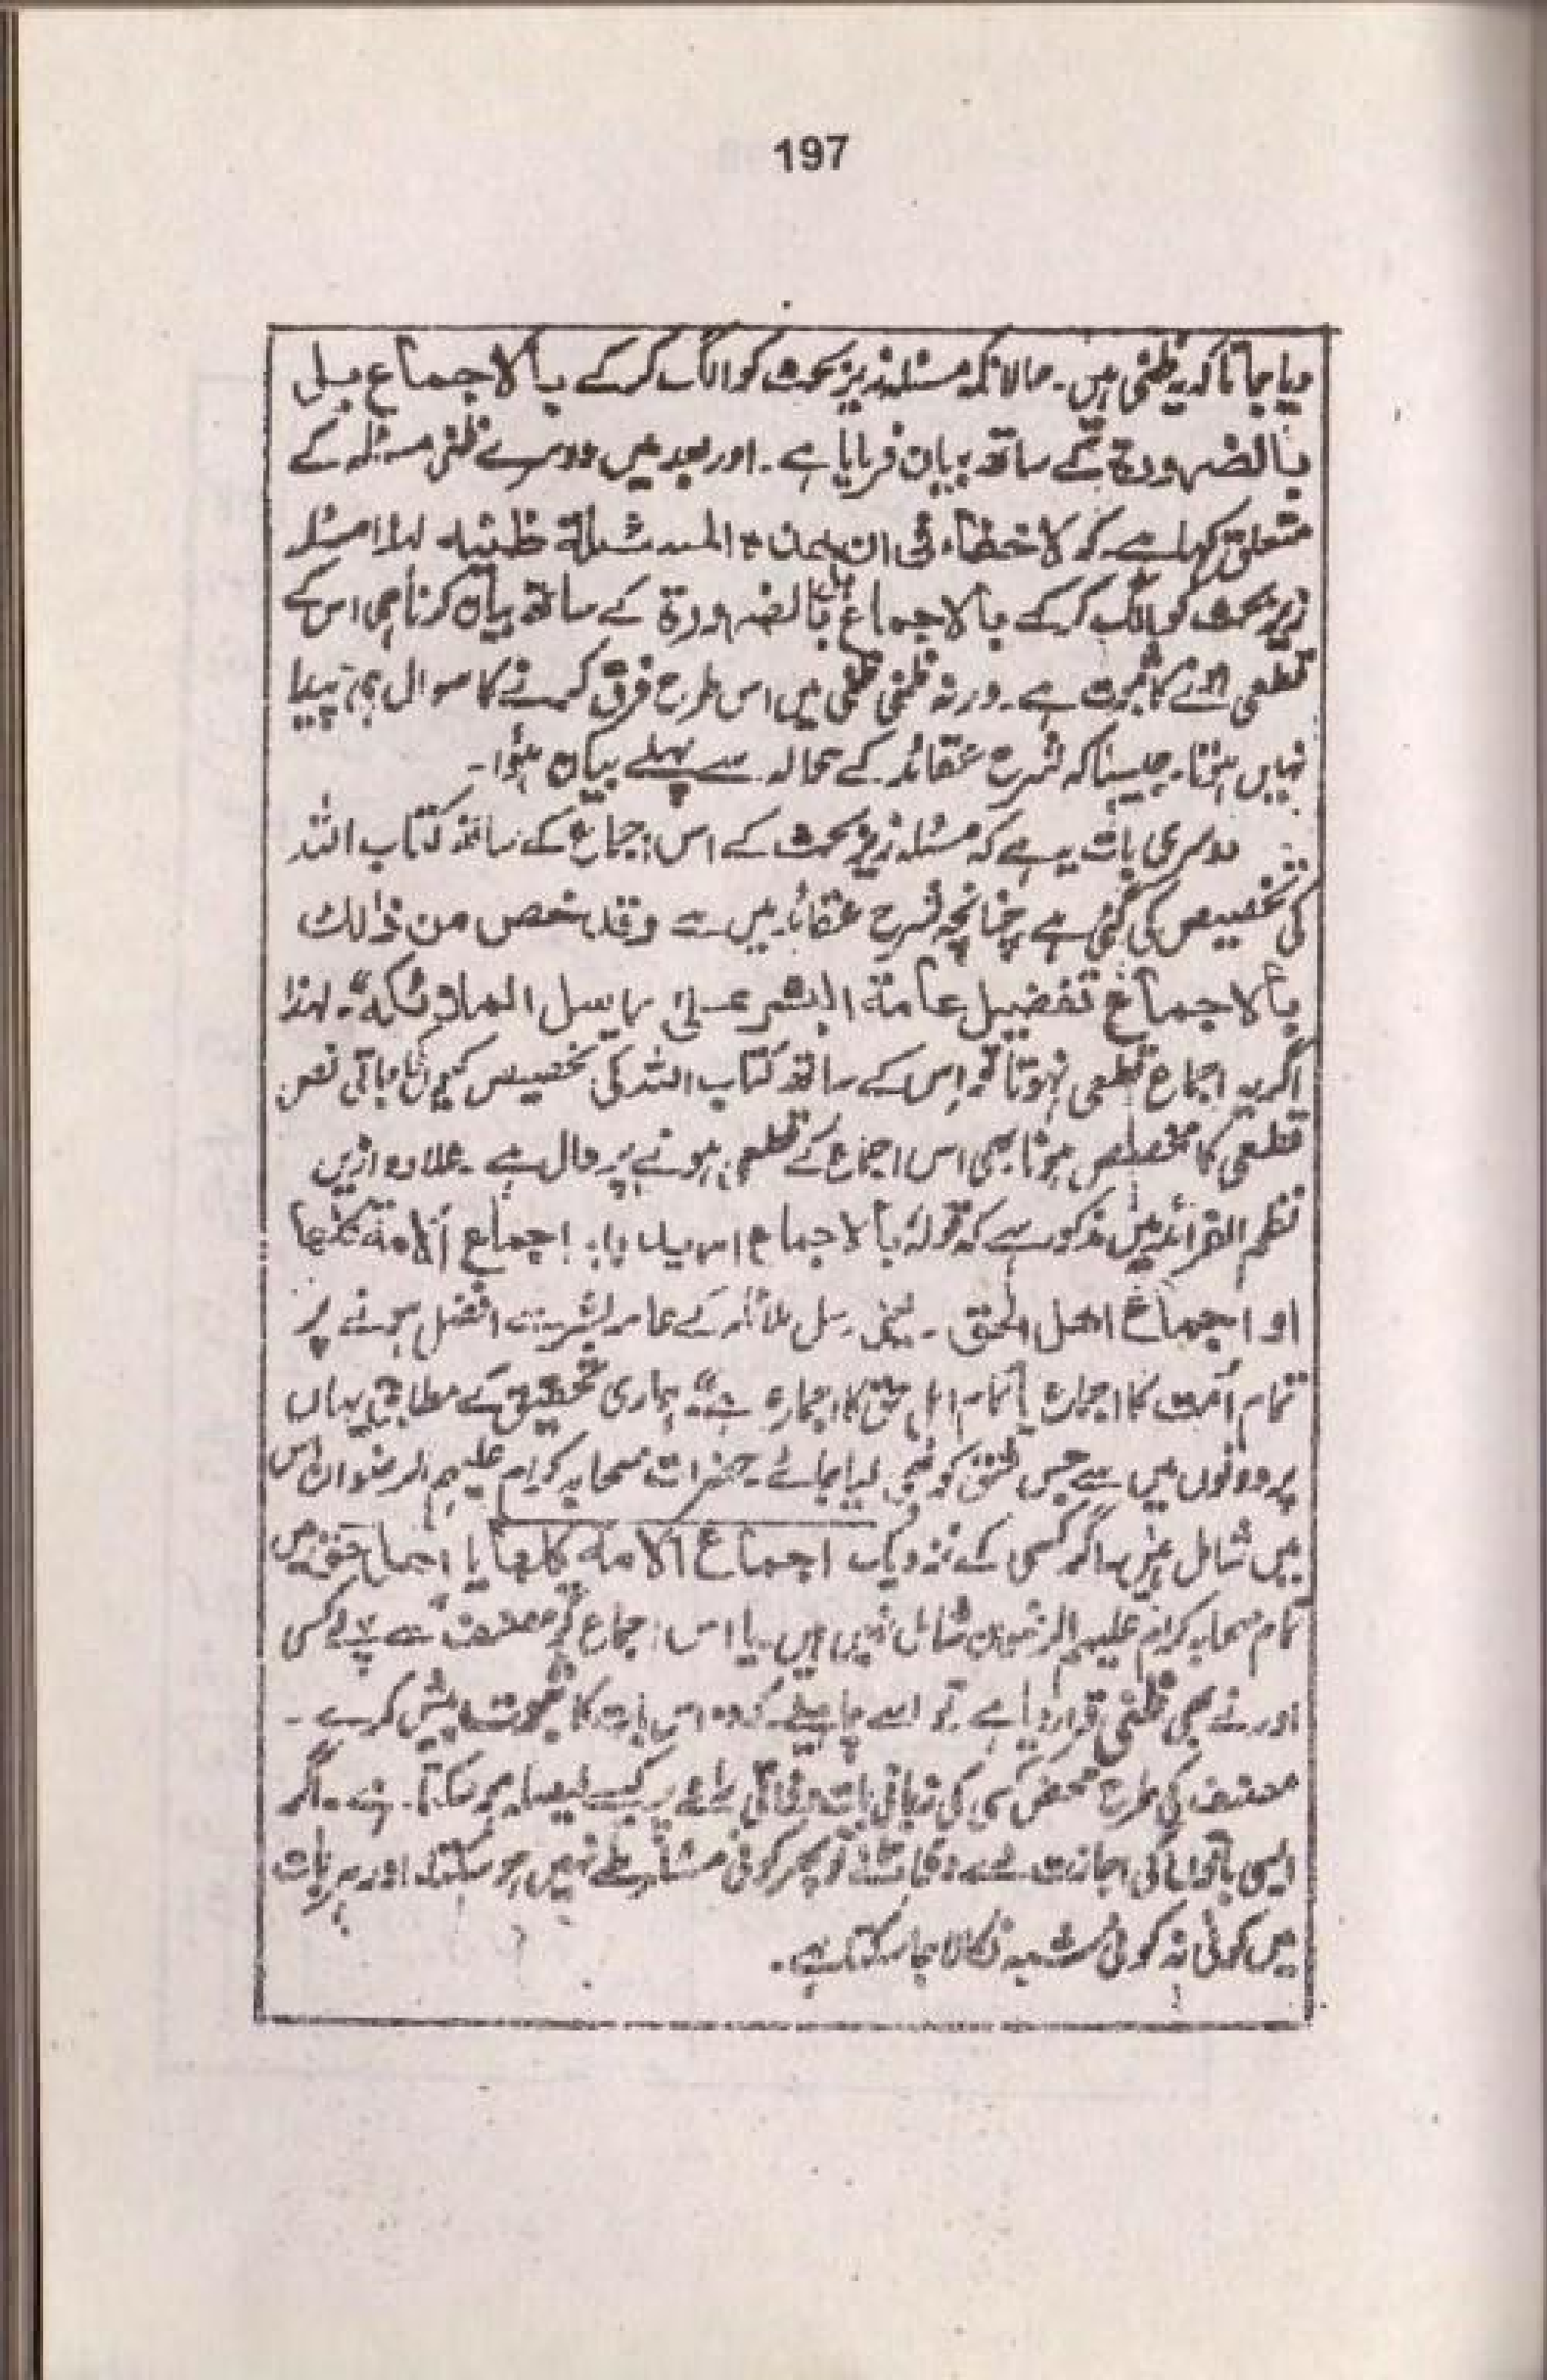 197
دیا جاتا کہ یہ ظنی ہیں۔ حالانکہ مسئلہ زیر بحث کو الگ کرکے بالاجماع بل
بالضرورة کے ساتھ بیان فرمایا ہے۔ اور بعد میں دوسرے ظنی مسئلہ کے
متعلق کہا ہے کہ لاخفاء فی ان هذه المسئلة ظنیه لہذا مسئلہ
زیر بحث کو الگ کرکے بالاجماع بل بالضرورة کے ساتھ بیان کرنا ہی اس کے
قطعی ہونے کا ثبوت ہے۔ ورنہ ظنی ظنی میں اس طرح فرق کرنے کا سوال ہی پیدا
نہیں ہوتا۔ جیسا کہ شرح عقائد کے حوالہ سے پہلے بیان ہوا۔
دوسری بات یہ ہے کہ مسئلہ زیر بحث کے اس اجماع کے ساتھ کتاب اللہ
کی تخصیص کی گئی ہے چنانچہ شرح عقائد میں ہے وقد خص من ذالك
بالاجماع تفضیل عامة البشر علی رسل الملائكة"۔ لہذا
اگر یہ اجماع قطعی نہ ہوتا تو اس کے ساتھ کتاب اللہ کی تخصیص کیوں کی جاتی نص
قطعی کا مخصص ہونا بھی اس اجماع کے قطعی ہونے پر دال ہے۔ علاوہ ازیں
نظم الفرائد میں مذکور ہے کہ قولہ بالاجماع اس ید بہ اجماع الامة كلها
او اجماع اهل الحق۔ یعنی رسل ملائکہ کے عامہ بشر سے افضل ہونے پر
تمام اُمت کا اجماع یا تمام اہل حق کا اجماع ہے" ہماری تحقیق کے مطابق یہاں
پر دونوں میں سے جس شق کو بھی لیا جائے۔ حضرات صحابہ کرام علیہم الرضوان اس
میں شامل ہیں۔ اگر کسی کے نزدیک اجماع الامه كلها یا اجماع حق میں
تمام صحابہ کرام علیہم الرضوان شامل نہیں ہیں۔ یا اس اجماع کو مصنف سے پہلے کسی
اور نے بھی ظنی قرار دیا ہے تو اسے چاہیئے کہ وہ اس بات کا ثبوت پیش کرے۔
مصنف کی طرح محض کسی کی زبانی بات رائے پر کیسے فیصلہ ہو سکتا ہے۔ اگر
ایسی باتوں کی اجازت تو پھر کوئی مسئلہ طے نہیں ہو سکتا۔ اور ہر بات
میں کوئی نہ کوئی شبہ نکالا جا سکتا ہے۔